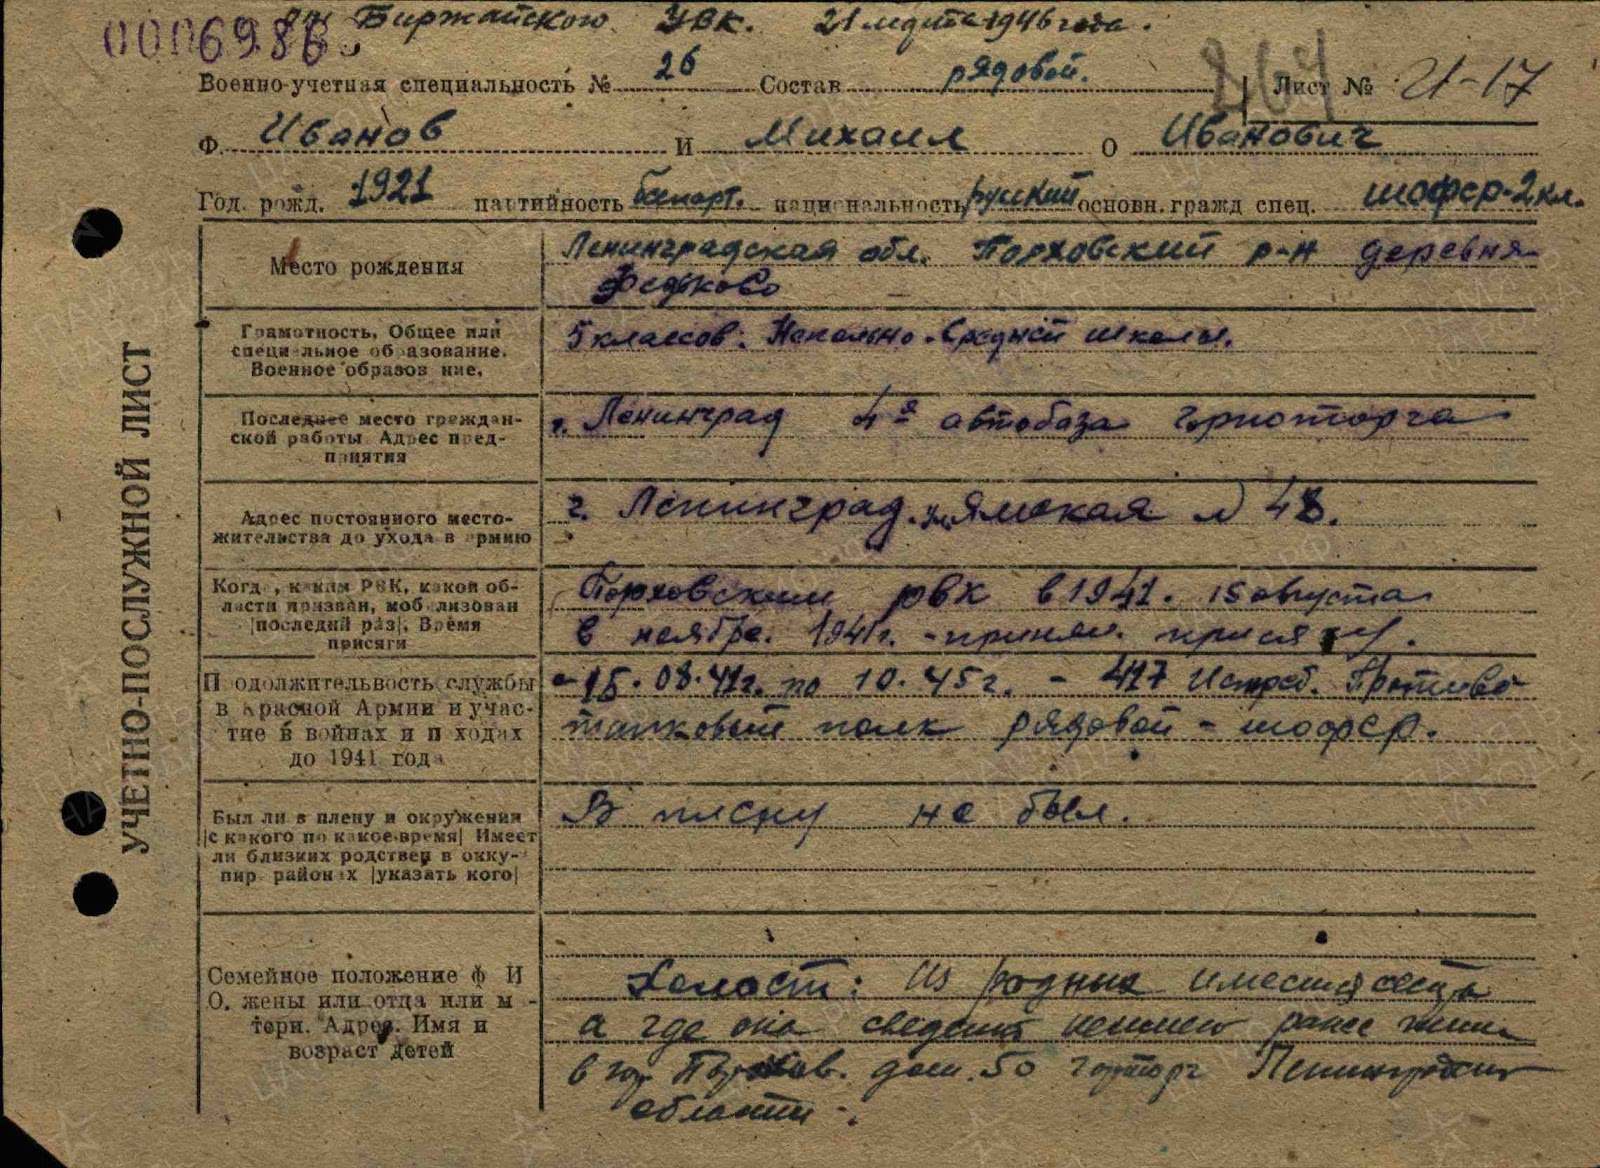 0006986
Биржайского УВК. 21 марта 1946 года.
Военно-учетная специальность № 26 Состав рядовой. Лист № И-17
464
Ф. Иванов И Михаил О Иванович
Год. рожд. 1921 партийность беспарт. национальность русский основн. гражд спец. шофер-2кл.
УЧЕТНО-ПОСЛУЖНОЙ ЛИСТ
Место рождения
Ленинградская обл. Порховский р-н деревня
Федково
Грамотность. Общее или
специальное образование.
Военное образов ние.
5 классов. Непольно-Средней школы.
Последнее место граждан-
ской работы Адрес пред-
приятия
г. Ленинград 4я автобаза
Адрес постоянного место-
жительства до ухода в армию
г. Ленинград. ул. Ямская № 48.
Когд , каким РВК, какой об-
ласти призван, моб лизован
|последний раз|. Время
присяги
Порховским рвк в 1941. 15 августа
в ноябре. 1941г. - принял. присягу.
П одолжительность службы
в Красной Армии и учас-
тие в войнах и п ходах
до 1941 года
-15.08.41г. по 10.45г. - 417 Истреб. Противо
танковый полк рядовой - шофер.
Был ли в плену и окружения
|с какого по какое время| Имеет
ли близких родствен в окку-
пир районах |указать кого|
В плену не был.
Семейное положение ф И
О. жены или отца или м -
тери. Адрес. Имя и
возраст детей
Холост: Из родных имеется сестра
а где она сведений неимею ранее жила
в гор Порхов. дом. 50 Ленинградской
области.